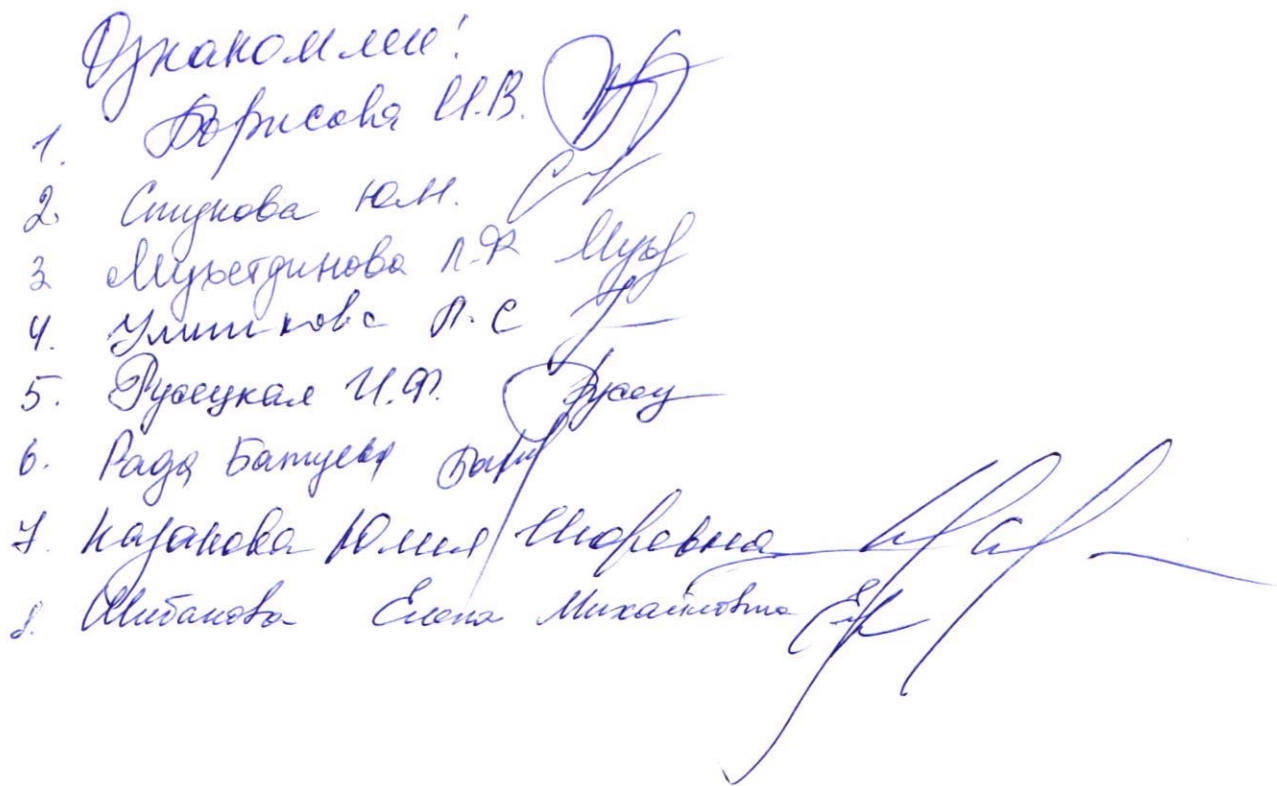 Ознакомлен!
1. Борисова И.В.
2. Стукова Ю.М.
3 Мухетдинова Л.Ф
4. Улитковс Л.С
5. Русецкая И.Ф.
6. Рада
7. Казакова Юлия Игоревна
8. Шибанова Елена Михайловна